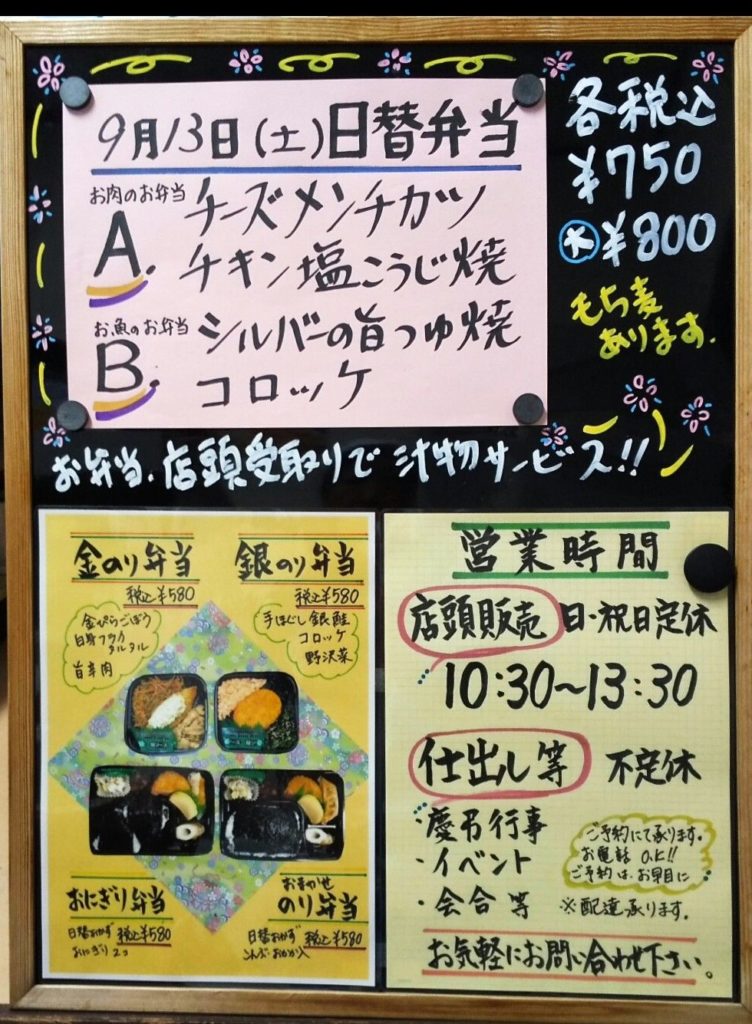 9月13日(土)日替弁当
お肉のお弁当
A.
チーズメンチカツ
チキン塩こうじ焼
お魚のお弁当
B.
シルバーの旨つゆ焼
コロッケ
各税込
¥750
大¥800
もち麦
あります.
お弁当、店頭受取りで汁物サービス!!
金のり弁当
税込¥580
金ぴらごぼう
白身フライ
タルタル
旨辛肉
銀のり弁当
税込¥580
手ほぐし銀鮭
コロッケ
野沢菜
おにぎり弁当
日替おかず 税込¥580
おにぎり2コ
おまかせ
のり弁当
日替おかず 税込¥580
こんぶ・おかか入
営業時間
店頭販売 日・祝日定休
10:30～13:30
仕出し等 不定休
・慶弔行事
・イベント
・会合等
ご予約にて承ります。
お電話O.K!!
ご予約は、お早目に
※配達承ります。
お気軽にお問い合わせ下さい。